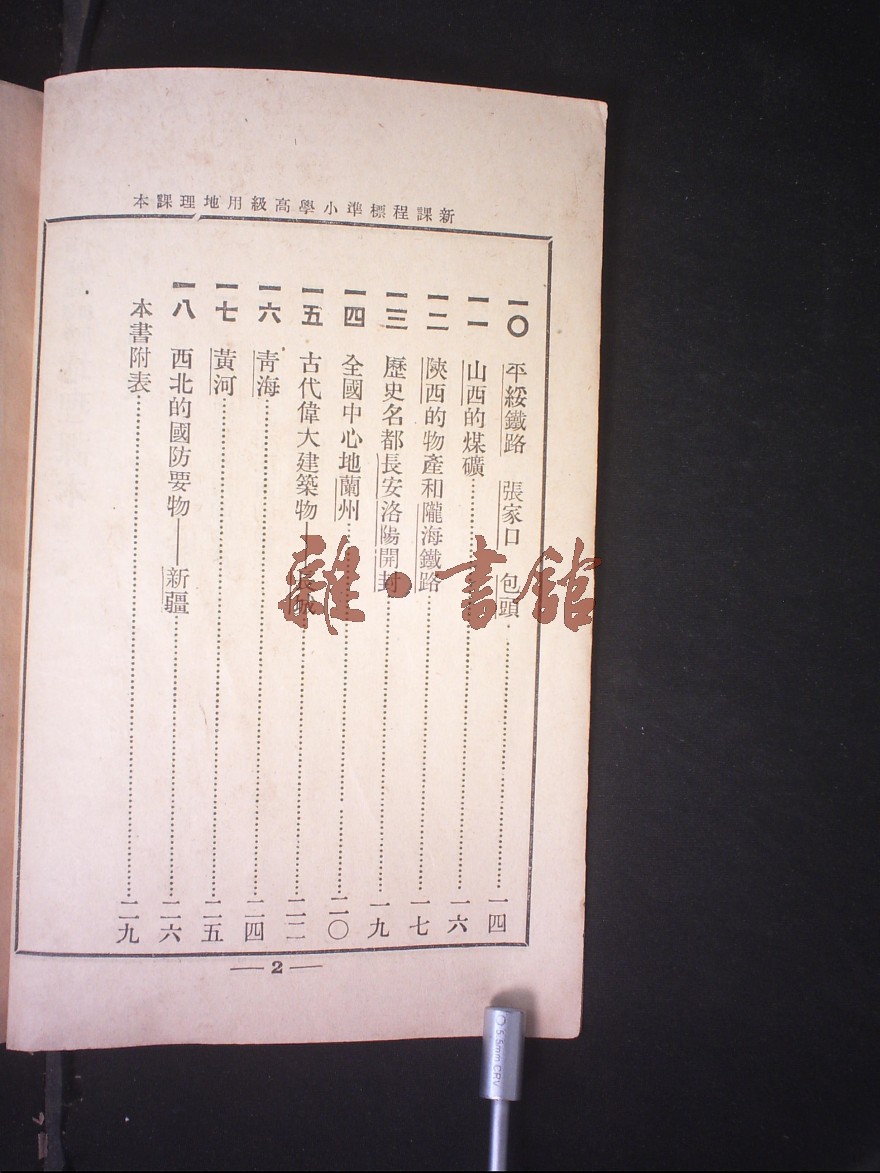 新課程標準小學高級用地理課本
一〇 平綏鐵路 張家口 包頭……一四
一一 山西的煤礦……一六
一二 陝西的物產和隴海鐵路……一七
一三 歷史名都長安洛陽開封……一九
一四 全國中心地蘭州……二〇
一五 古代偉大建築物——長城……二二
一六 青海……二四
一七 黃河……二五
一八 西北的國防要物——新疆……二六
本書附表……二九
— 2 —
雜·書館
5.5mm CRV